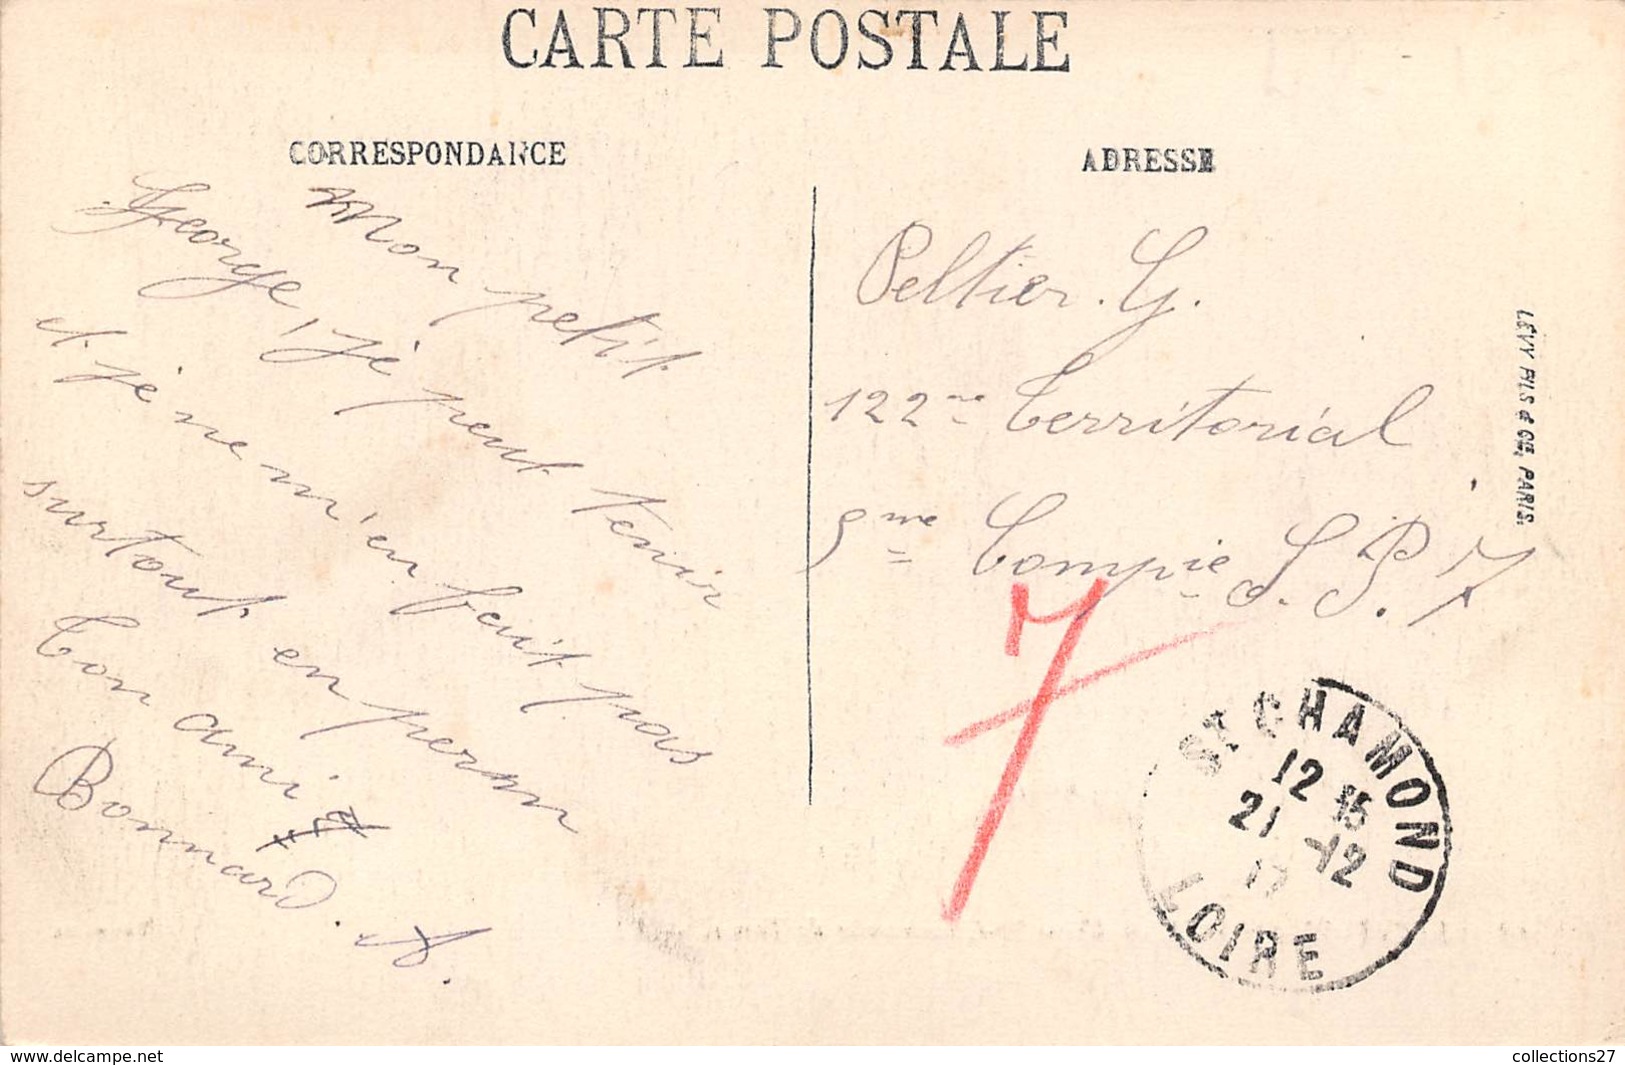 CARTE POSTALE
CORRESPONDANCE
Mon petit
George, je peut tenir
et je ne m'en fait pas
surtout en perm
Ton ami
Bonnard. A.
ADRESSE
Peltier. G.
122me Territorial
9me Compie S. P. 7
7
LÉVY FILS & CIE, PARIS.
ST CHAMOND
12 15
21 -12
17
LOIRE
www.delcampe.net
collections27